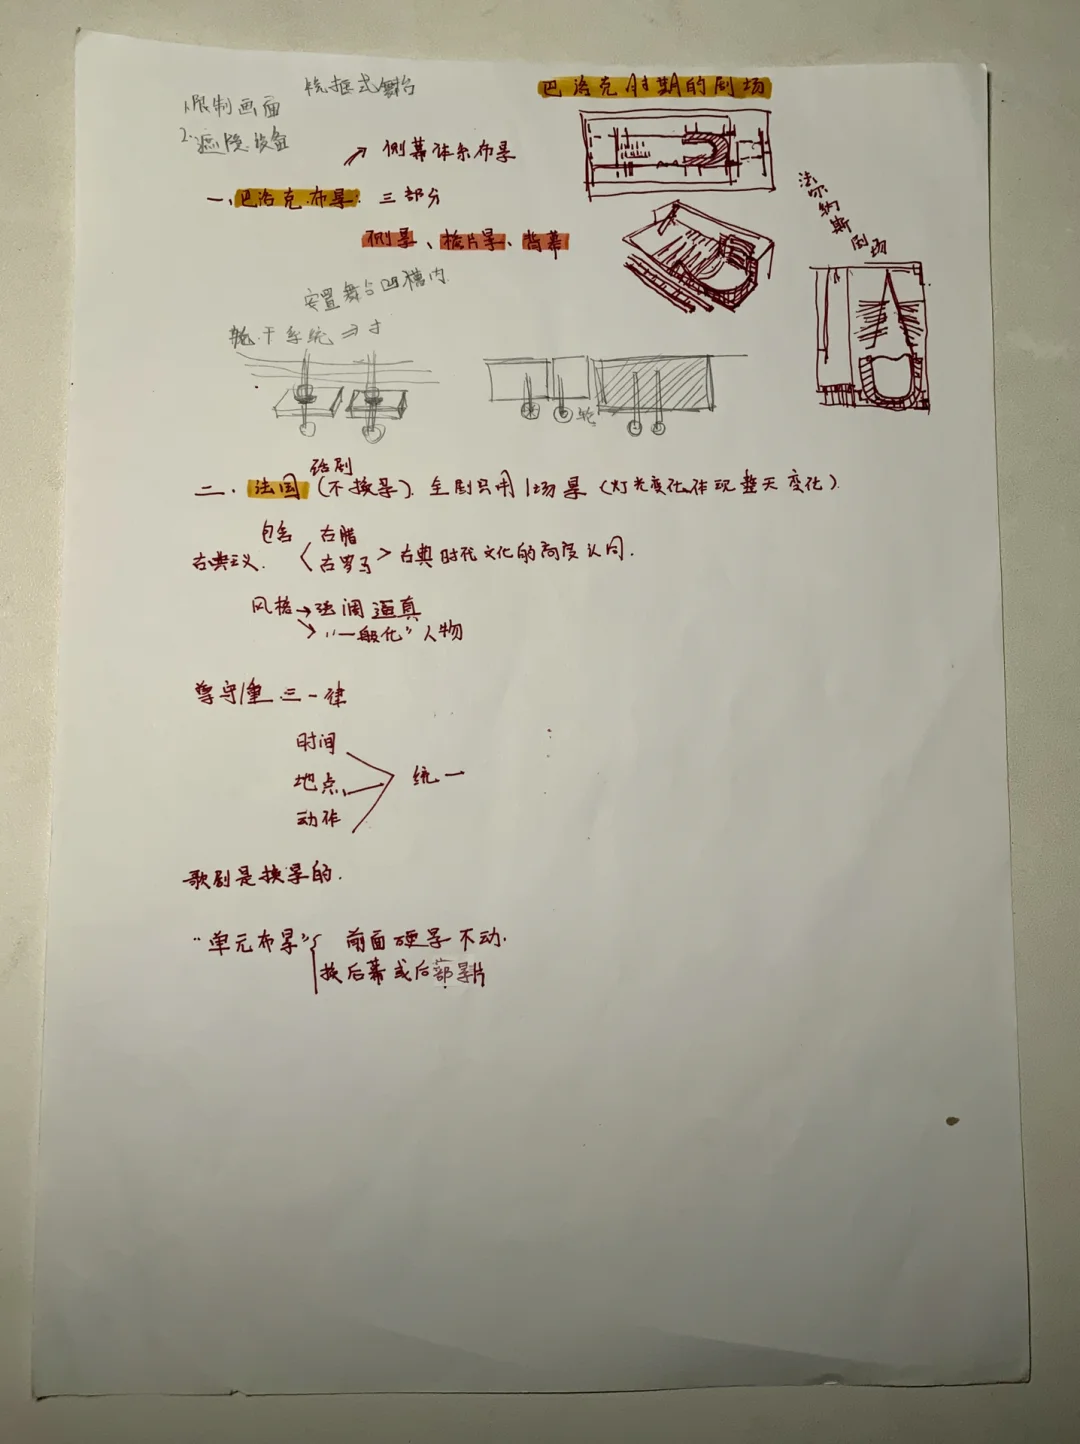 镜框式舞台
1.限制画面
2.遮隐设备
巴洛克时期的剧场
侧幕体系布景
一、巴洛克布景: 三部分
侧景、檐片景、背幕
法尔纳斯剧场
安置舞台凹槽内
干系统
轮
话剧
二.法国(不换景). 全剧只用1场景(灯光变化体现整天变化).
包含 古腊
古典主义. 古罗马>古典时代文化的高度认同.
风格→强调逼真
"一般化"人物
尊守 三一律
时间
地点 统一
动作
歌剧是换景的.
"单元布景" 前面硬景不动.
换后幕或后部景片